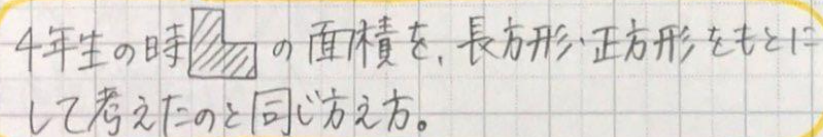 4年生の時の面積を、長方形・正方形をもとに
して考えたのと同じ方え方。